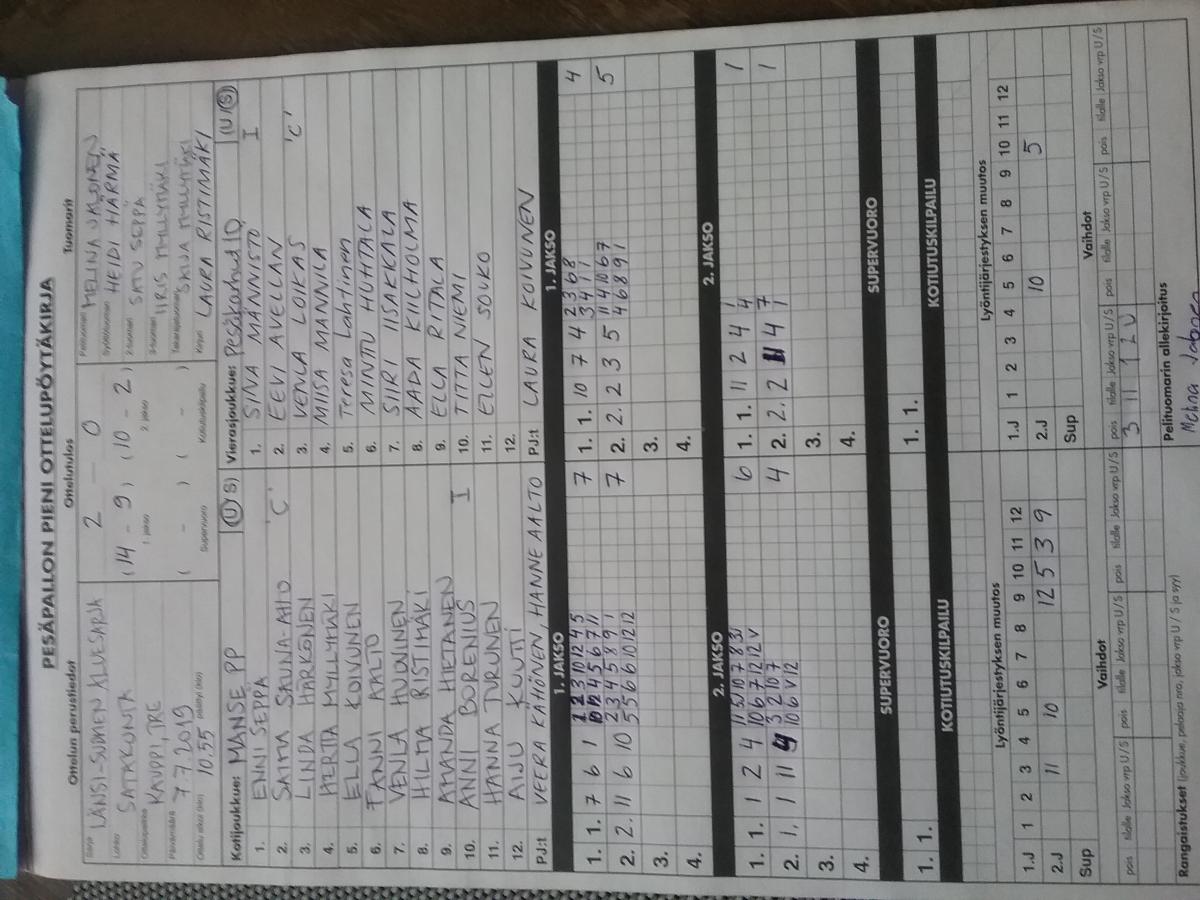 PESÄPALLON PIENI OTTELUPÖYTÄKIRJA
Ottelun perustiedot
Ottelutulos
Tuomarit
Sarja LÄNSI-SUOMEN ALUESARJA
Lohko SATAKUNTA
Ottelupaikka KAUPPI, TRE
Päivämäärä 7.7.2019
Ottelu alkoi (klo) 10.55 päättyi (klo)
2 0
(14 - 9) (10 - 2)
1. jakso 2. jakso
( - ) ( - )
Supervuoro Kotiutuskilpailu
Pelituomari
Syöttötuomari HEIDI HÄRMÄ
2-tuomari SATU SEPPÄ
3-tuomari IIRIS MYLLYMÄKI
Takarajatuomari
Kirjuri LAURA RISTIMÄKI
Kotijoukkue: MANSE PP (U/S)
1. ENNI SEPPÄ
2. SAIMA SAUNA-AHO 'C'
3. LINDA HÄRKÖNEN
4. HERTTA MYLLYMÄKI
5. ELLA KOIVUNEN
6. FANNI AALTO
7. VENLA HUOVINEN
8. HILMA RISTIMÄKI
9. AMANDA HIETANEN
10. ANNI BORENIUS I
11. HANNA TURUNEN
12. AIJU KUUTTI
PJ:t VEERA KÄHÖNEN, HANNE AALTO
Vierasjoukkue: Pesäkarhut (U/S)
1. SINA MÄNNISTÖ I
2. EEVI AVELLAN
3. VENLA LOIKAS 'C'
4. MIISA MANNILA
5. Teresa Lahtinen
6. MINTTU HUHTALA
7. SIIRI IISAKKALA
8. AADA KIILHOLMA
9. ELLA RITALA
10. TITTA NIEMI
11. ELLEN SOUKO
12.
PJ:t LAURA KOIVUNEN
1. JAKSO
1. 1. 7 6 1 7
2. 2. 11 6 10 7
3.
4.
1. JAKSO
1. 1. 10 7 4 4
2. 2. 2 3 5 5
3.
4.
2. JAKSO
1. 1. 1 2 4 6
2. 1. 1 11 4
3.
4.
2. JAKSO
1. 1. 11 2 4 4 1
2. 2. 2 1
3.
4.
SUPERVUORO
1. 1.
SUPERVUORO
1. 1.
KOTIUTUSKILPAILU
KOTIUTUSKILPAILU
Lyöntijärjestyksen muutos
1.J 1 2 3 4 5 6 7 8 9 10 11 12
2.J 11 10 12 5 3 9
Sup
Lyöntijärjestyksen muutos
1.J 1 2 3 4 5 6 7 8 9 10 11 12
2.J 10 5
Sup
Vaihdot
pois tilalle Jakso vrp U/S pois tilalle Jakso vrp U/S pois tilalle Jakso vrp U/S
Vaihdot
pois tilalle Jakso vrp U/S pois tilalle Jakso vrp U/S pois tilalle Jakso vrp U/S
3 11 1 2 U
Rangaistukset (joukkue, pelaaja nro, jakso, vrp U/S ja syy)
Pelituomarin allekirjoitus